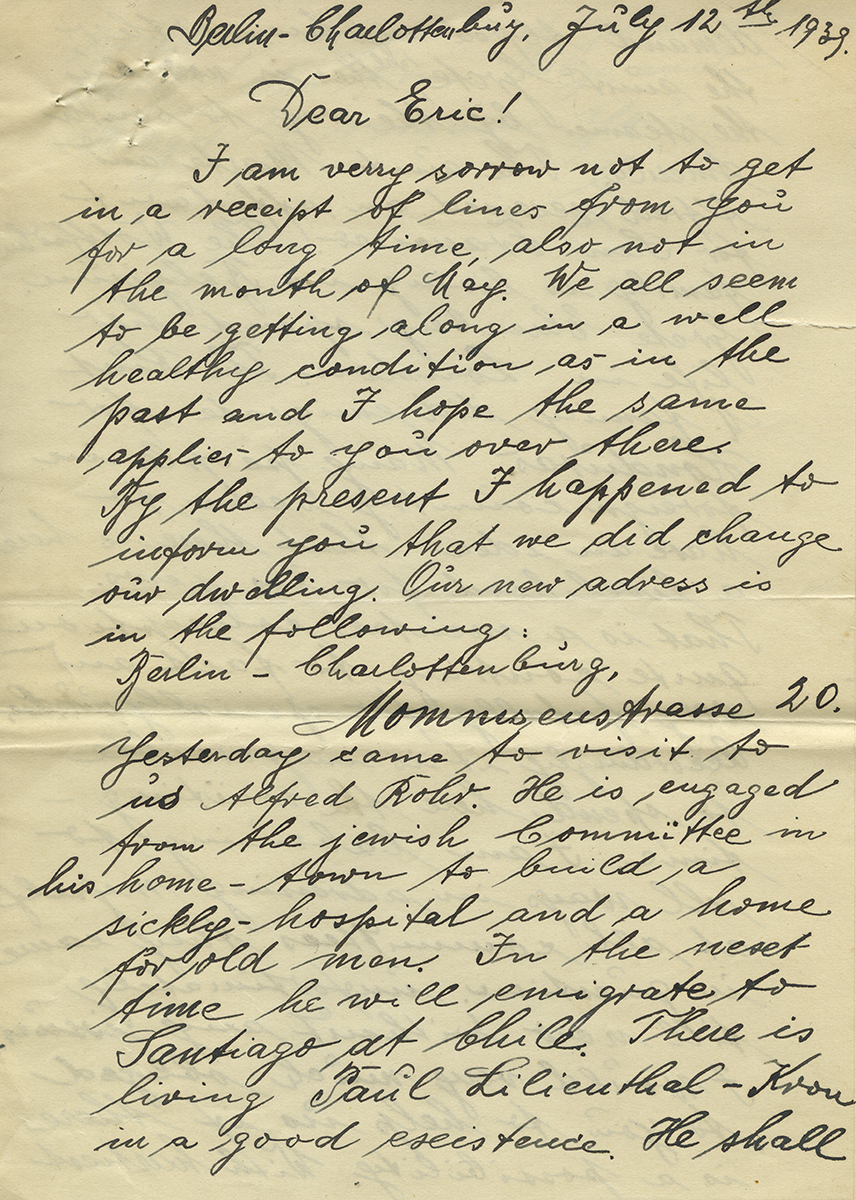 Berlin-Charlottenburg, July 12th 1939.
Dear Eric!
I am verry sorrow not to get
in a receipt of lines from you
for a long time, also not in
the month of May. We all seem
to be getting along in a well
healthy condition as in the
past and I hope the same
applies to you over there.
By the present I happened to
inform you that we did change
our dwelling. Our new adress is
in the following:
Berlin - Charlottenburg,
Mommsenstrasse 20.
Yesterday came to visit to
us Alfred Rohr. He is engaged
from the jewish Committee in
his home-town to build a
sickly-hospital and a home
for old men. In the next
time he will emigrate to
Santiago at Chile. There is
living Paul Lilienthal-Kron
in a good existence. He shall